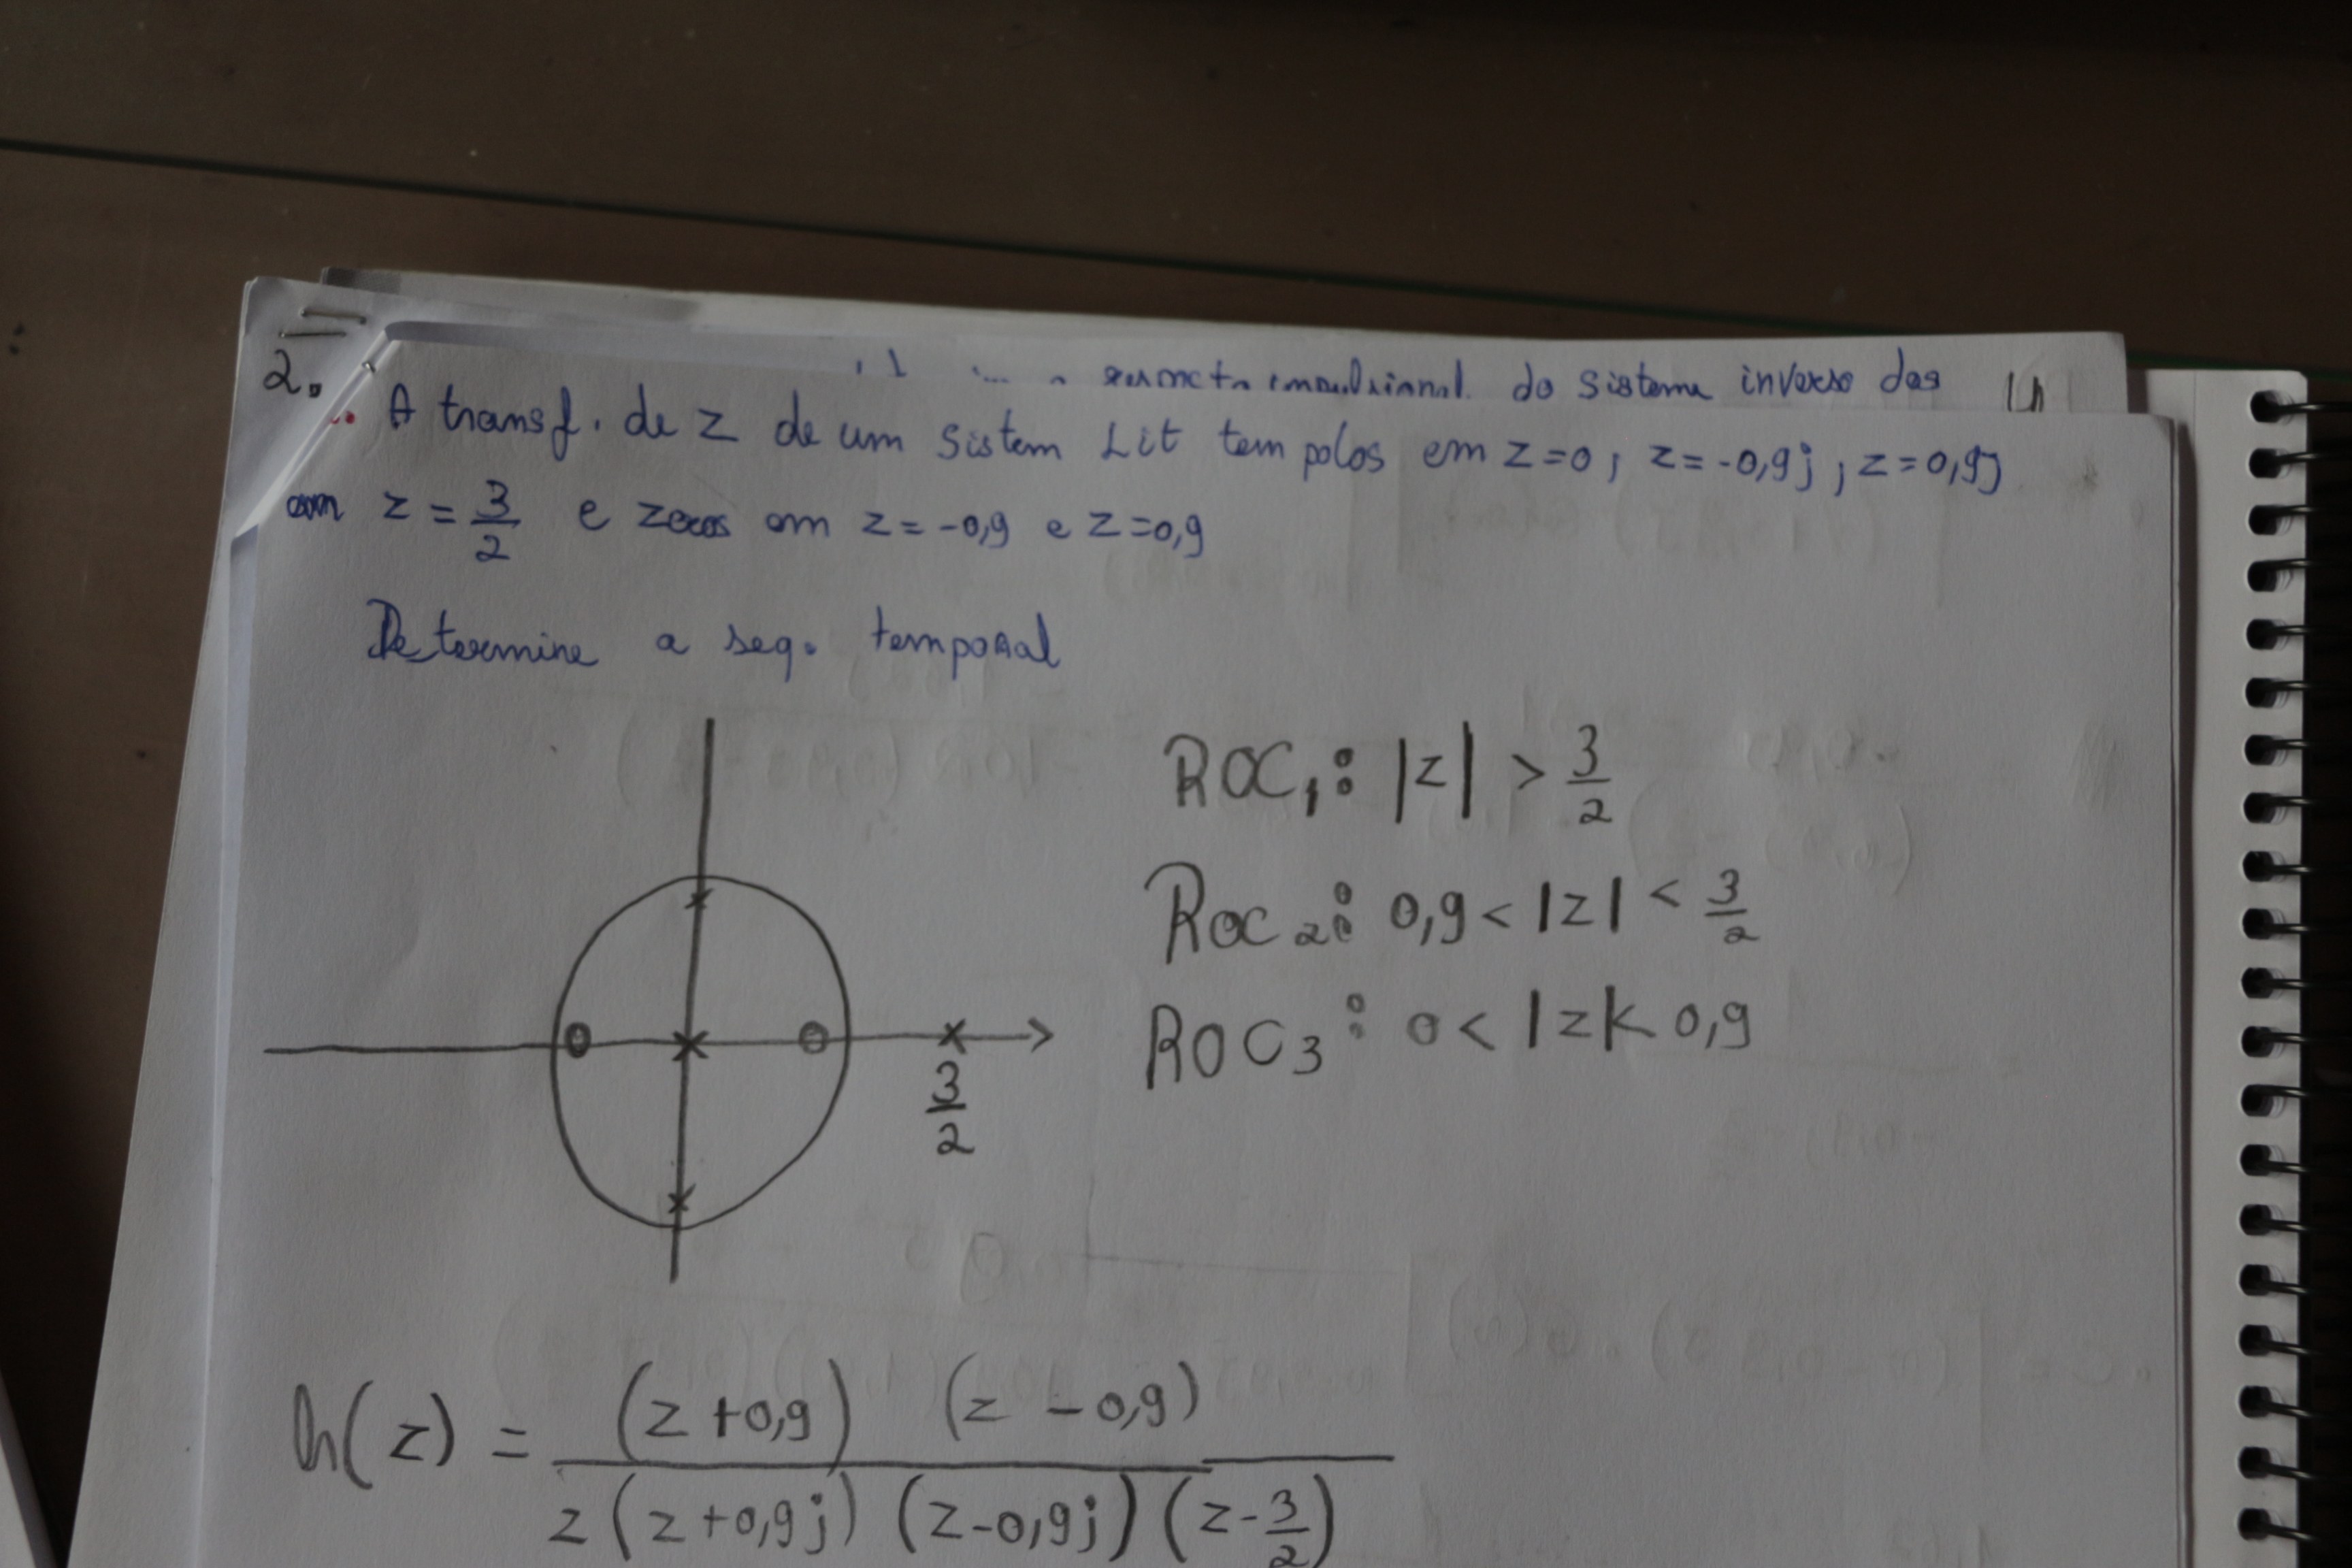 do sistema inverso das
2.
A transf. de z de um sistem Lit tem polos em z=0; z=-0,9j; z=0,9j
em z = 3/2 e zeros em z=-0,9 e z=0,9
Determine a seq. temporal
ROC1: |z| > 3/2
Roc2: 0,9 < |z| < 3/2
ROC3: 0 < |z| < 0,9
3/2
h(z) = (z+0,9) (z-0,9) / z(z+0,9j)(z-0,9j)(z-3/2)